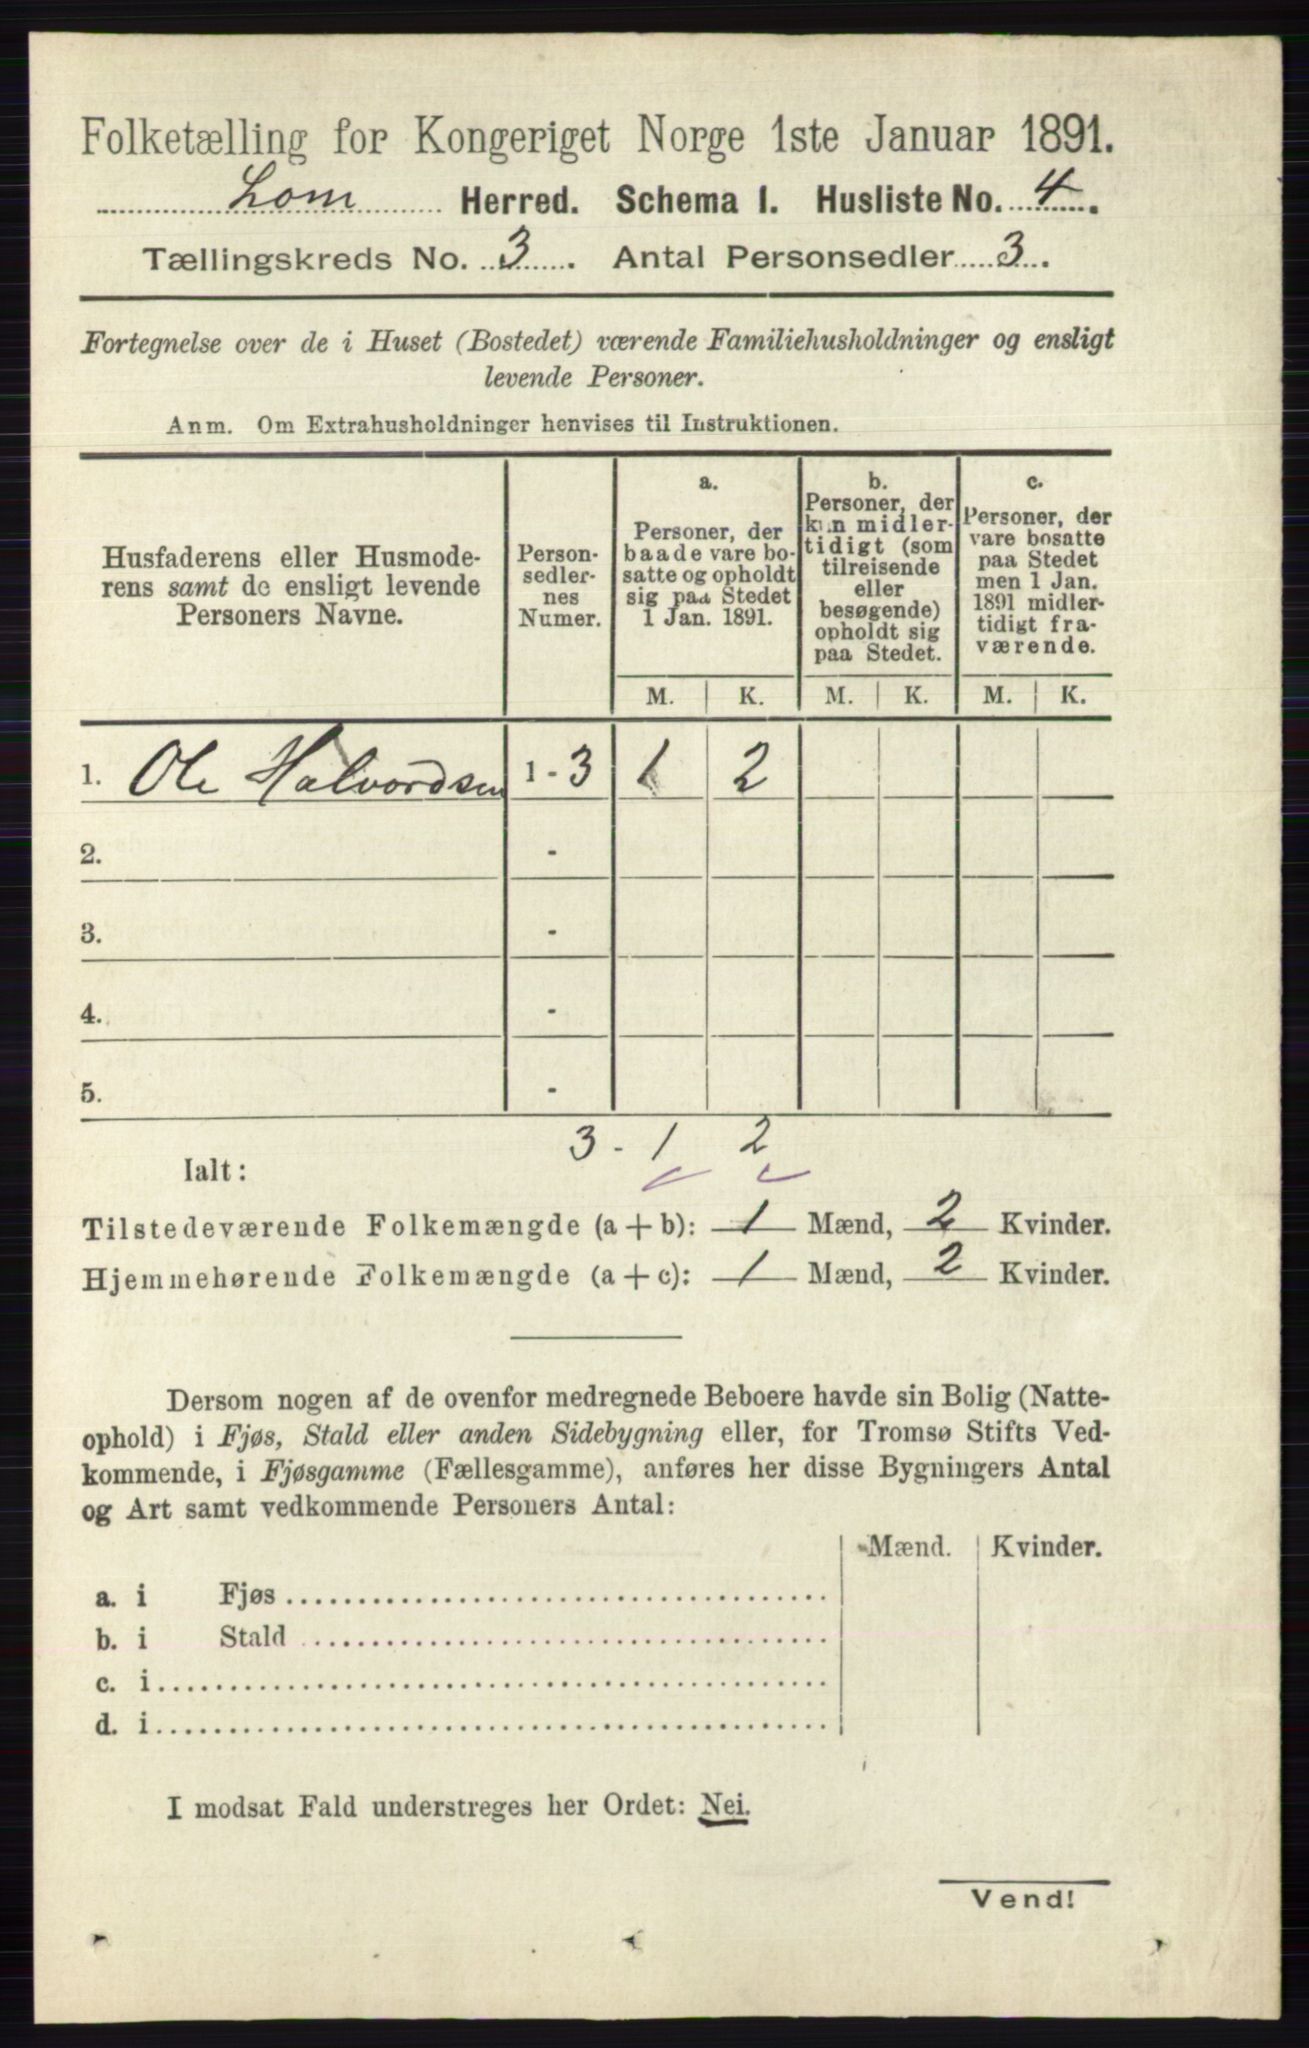 Folketælling for Kongeriget Norge 1ste Januar 1891.
Lom Herred. Schema I. Husliste No. 4.
Tællingskreds No. 3. Antal Personsedler 3.
Fortegnelse over de i Huset (Bostedet) værende Familiehusholdninger og ensligt
levende Personer.
Anm. Om Extrahusholdninger henvises til Instruktionen.
Husfaderens eller Husmode-
rens samt de ensligt levende
Personers Navne.
Person-
sedler-
nes
Numer.
a.
Personer, der
baade vare bo-
satte og opholdt
sig paa Stedet
1 Jan. 1891.
b.
Personer, der
kun midler-
tidigt (som
tilreisende
eller
besøgende)
opholdt sig
paa Stedet.
c.
Personer, der
vare bosatte
paa Stedet
men 1 Jan.
1891 midler-
tidigt fra-
værende.
M. K. M. K. M. K.
1. Ole Halvordsen 1 - 3 1 2
2. -
3. -
4. -
5. -
3 - 1 2
Ialt:
Tilstedeværende Folkemængde (a + b): 1 Mænd, 2 Kvinder.
Hjemmehørende Folkemængde (a + c): 1 Mænd, 2 Kvinder.
Dersom nogen af de ovenfor medregnede Beboere havde sin Bolig (Natte-
ophold) i Fjøs, Stald eller anden Sidebygning eller, for Tromsø Stifts Ved-
kommende, i Fjøsgamme (Fællesgamme), anføres her disse Bygningers Antal
og Art samt vedkommende Personers Antal:
Mænd. Kvinder.
a. i Fjøs
b. i Stald
c. i
d. i
I modsat Fald understreges her Ordet: Nei.
Vend!